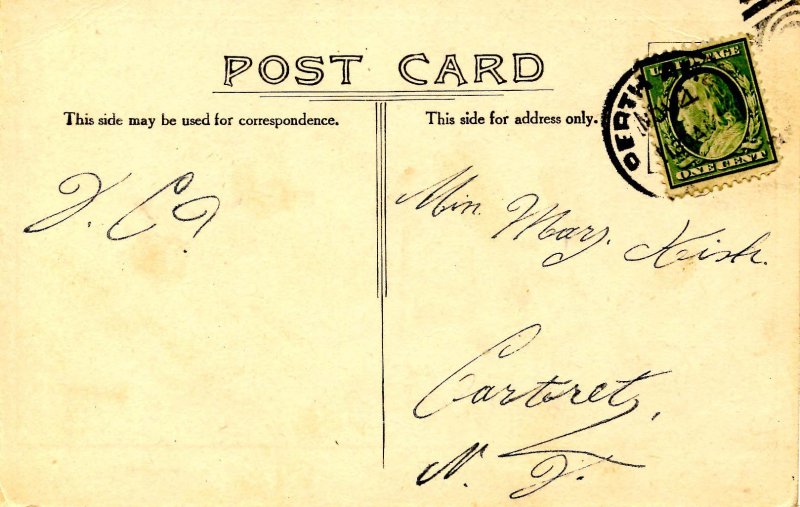 POST CARD
This side may be used for correspondence.
This side for address only.
U.S. POSTAGE
ONE CENT
PERTH AM
Miss Mary. Kish.
Carteret,
N. J.